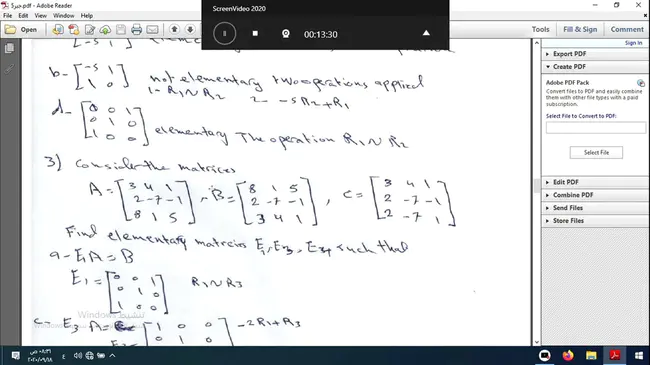 ScreenVideo 2020
5جبر.pdf - Adobe Reader
File Edit Window Help
Open
00:13:30
Tools Fill & Sign Comment
Sign In
Export PDF
Create PDF
Adobe PDF Pack
Convert files to PDF and easily combine
them with other file types with a paid
subscription.
Select File to Convert to PDF:
Select File
Edit PDF
Combine PDF
Send Files
Store Files
-5 1
b- [-5 1
1 0] not elementary two operations applied
1- R1 ~ R2 2- -5R2+R1
d- [0 0 1
0 1 0
1 0 0] elementary The operation R1 ~ R2
3) Consider the matrices
A = [3 4 1
2 -7 -1
8 1 5] , B = [8 1 5
2 -7 -1
3 4 1] , C = [3 4 1
2 -7 -1
2 -7 1]
Find elementary matrcies E1, E3, E4 such that
a- E1A = B
E1 = [0 0 1
0 1 0
1 0 0] R1 ~ R3
تنشيط Windows
Windows
c- E3 A = C [1 0 0 -2R1+R3
0 1 0
ص ٠٨:٣٦
٢٠٢٠/٠٩/١٨